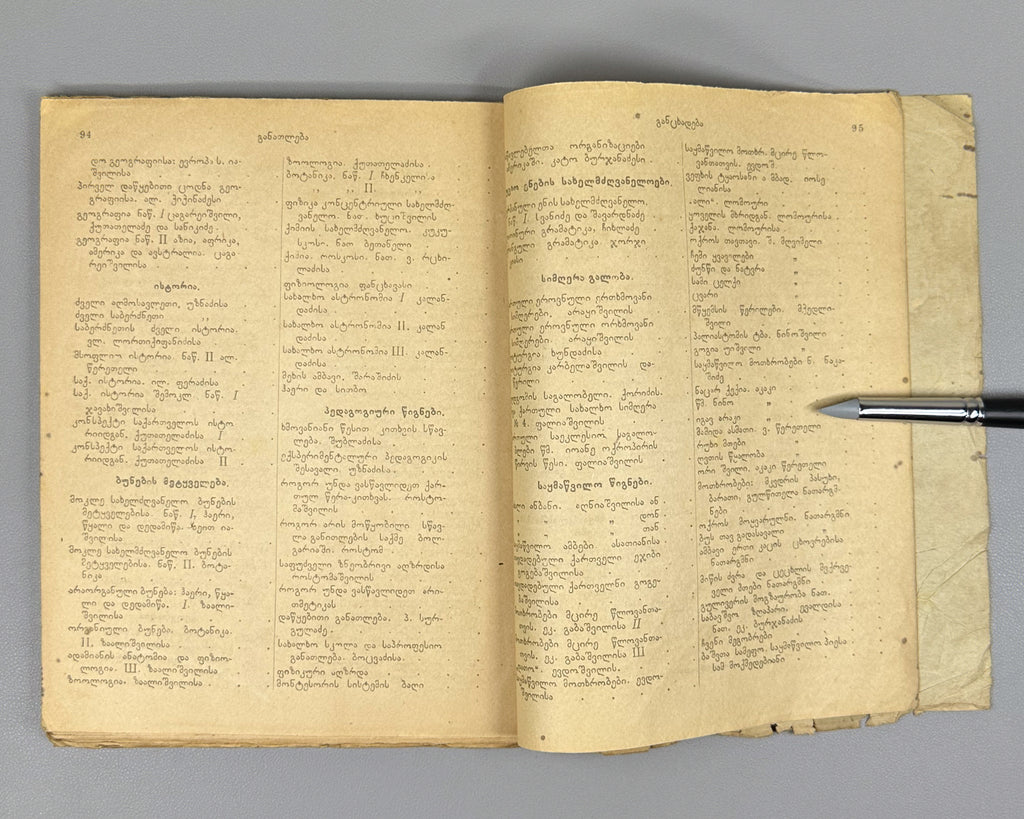 94
განათლება
დო გეოგრაფიისა: ევროპა ს. ია-
შვილისა
პირველ დაწყებითი ცოდნა გეო-
გრაფიისა. ალ. ქიქინაძესი
გეოგრაფია ნაწ. I ცაგარეიშვილი,
ქუთათელაძე და სანიკიძე.
გეოგრაფია ნაწ. II აზია, აფრიკა,
ამერიკა და ავსტრალია. ცაგა
რეიშვილისა
ისტორია.
ძველი აღმოსავლეთი, უზნაძისა
ძველი საბერძნეთი ,,
საბერძნეთის ძველი ისტორია.
ვლ. ლორთქიფანიძისა
მსოფლიო ისტორია. ნაწ. II ალ.
წერეთელი
საქ. ისტორია. ილ. ფერაძისა
საქ. ისტორია შემოკლ. ნაწ. I
ჯავახიშვილისა
კონსპექტი საქართველოს ისტო
რიიდგან. ქუთათელაძისა I
კონსპექტი საქართველოს ისტო-
რიიდგან. ქუთათელაძისა II
ბუნების მეტყველება.
მოკლე სახელმძღვანელო ბუნების
მეტყველებისა. ნაწ. I, ჰაერი,
წყალი და დედამიწა. ზეით ია-
შვილისა
მოკლე სახელმძღვანელო ბუნების
მეტყველებისა. ნაწ. II. ბოტა-
ნიკა
არაორგანული ბუნება: ჰაერი, წყა-
ლი და დედამიწა. I. ზაალი-
შვილისა
ორგანიული ბუნება. ბოტანიკა.
II. ზაალიშვილისა
ადამიანის ანატომია და ფიზიო-
ლოგია. III. ზაალიშვილისა
ზოოლოგია. ზაალიშვილისა
ზოოლოგია. ქუთათელაძისა
ბოტანიკა, ნაწ. I ჩხენკელისა
,, ,, II. ,,
ფიზიკა კონცენტრიული სახელმძღ-
ვანელო. ნათ. ხუციშვილის
ქიმიის სახელმძღვანელო. კუკუ-
სკისო. ნათ ბეთანელი
ქიმია. როსკოსი. ნათ. ვ. რცხი-
ლაძისა
ფიზიოლოგია ფანცხავასი
სახალხო ასტრონომია I კალან-
დაძისა
სახალხო ასტრონომია II. კალან
დაძისა
სახალხო ასტრონომია III. კალან-
დაძისა
მეხის ამბავი. შარაშიძის
ჰაერი და სითბო
პედაგოგიური წიგნები.
ხმოვანიანი წესით კითხვის სწავ-
ლება. შუბლაძისა
ექსპერიმენტალური პედაგოგიკის
შესავალი. უზნაძისა
როგორ უნდა ვასწავლიდეთ ქარ-
თულ წერა-კითხვას. როსტო-
მაშვილის
როგორ არის მოწყობილი სწავ-
ლა განითლების საქმე ბოლ-
გარიაში. როსტომ
საფუძველი ზნეობრივი აღზრდისა
როსტომაშვილის
როგორ უნდა ვასწავლიდეთ არი-
თმეტიკას
დაწყებითი განათლება. პ. სურ-
გულაძე
სახალხო სკოლა და საპროფესიო
განათლება. ბოცვაძისა
ფიზიკური აღზრდა
მონტესორის სისტემის ბაღი
განცხადება
95
ორგანიზაციები
კატო ბურჯანაძესი
ენების სახელმძღვანელოები.
ენის სახელმძღვანელო,
ნაწ. I. სვანიძე და შავარდნაძე
გრამატიკა, ჩიხლაძე
გრამატიკა ჯორჯი
სიმღერა გალობა.
ეროვნული ერთხმოვანი
არაყიშვილის
ეროვნული ორხმოვანი
არაყიშვილის
ხუნდაძისა
კარბელაშვილის და-
საგალობელი. ქორიძის
ქართული სახალხო სიმღერა
№ 4. ფალიაშვილის
საეკლესიო საგალო-
წმ. იოანე ოქროპირის
წირვის წესი. ფალიაშვილის
საყმაწვილო წიგნები.
ანბანი. აღნიაშვილისა ან
„ „ დონ
„ „ თან
ამბები ასათიანისა
ქართველი ექიმი
გოგებაშვილისა
ქართველნი გოგე-
ბაშვილისა
მცირე წლოვანთა-
თვის. ეკ. გაბაშვილისა II
მცირე წლოვანთა-
თვის. ეკ. გაბაშვილისა III
ევდოშვილის.
მოთხრობები. ევდო-
შვილისა
საყმაწვილო მოთხრ. მცირე წლო-
ვანთათვის. ევდოშ.
ვეფხის ტყაოსანი ა მბად. იოსე
ლიანისა
„ალი“. ლომოური
ყოველის მხრიდგან. ლომოურისა
ქაჯანა. ლომოურისა
ოქროს თავთავი. შ. მღვიმელი
ჩემი ყვავილები „
ძუნწი და ნატვრა „
სამი ცელქი „
ცვარი „
მწყემსის წერილები. მჭედლი-
შვილი
პალიასტომის ტბა. ნინოშვილი
გოგია უიშვილი „
საყმაწვილო მოთხრობები ნ. ნაკა-
შიძე
ნაცარ ქექია. აკაკი
წმ. ნინო „
იგავ არაკი „
მამიდა ასმათი. ვ. წერეთელი
რუხი მთები „
ღვთის წყალობა „
ორი შვილი. აკაკი წერეთელი
მოთხრობები: მკვდრის პასუხი,
ბარათი, გულწითელა ნათარგმ-
ნები
ოქროს მოყვარულნი. ნათარგმნი
ბუს თავ გადასავალი
ამბავი ერთი კაცის ცხოვრებისა
ნათარგმნი
მიწის ძვრა და ცეცხლის მფრქვე-
ველი მთები ნათარგმნი
გულივერის მოგზაურობა ნათ.
საბავშვო ზღაპარი. ევალდისა
ნათ. ეკ. ბურჯანაძის
ჩვენი მეგობრები
ბავშვთა სამეფო. საყმაწვილო პიესა
სამ მოქმედებიანი